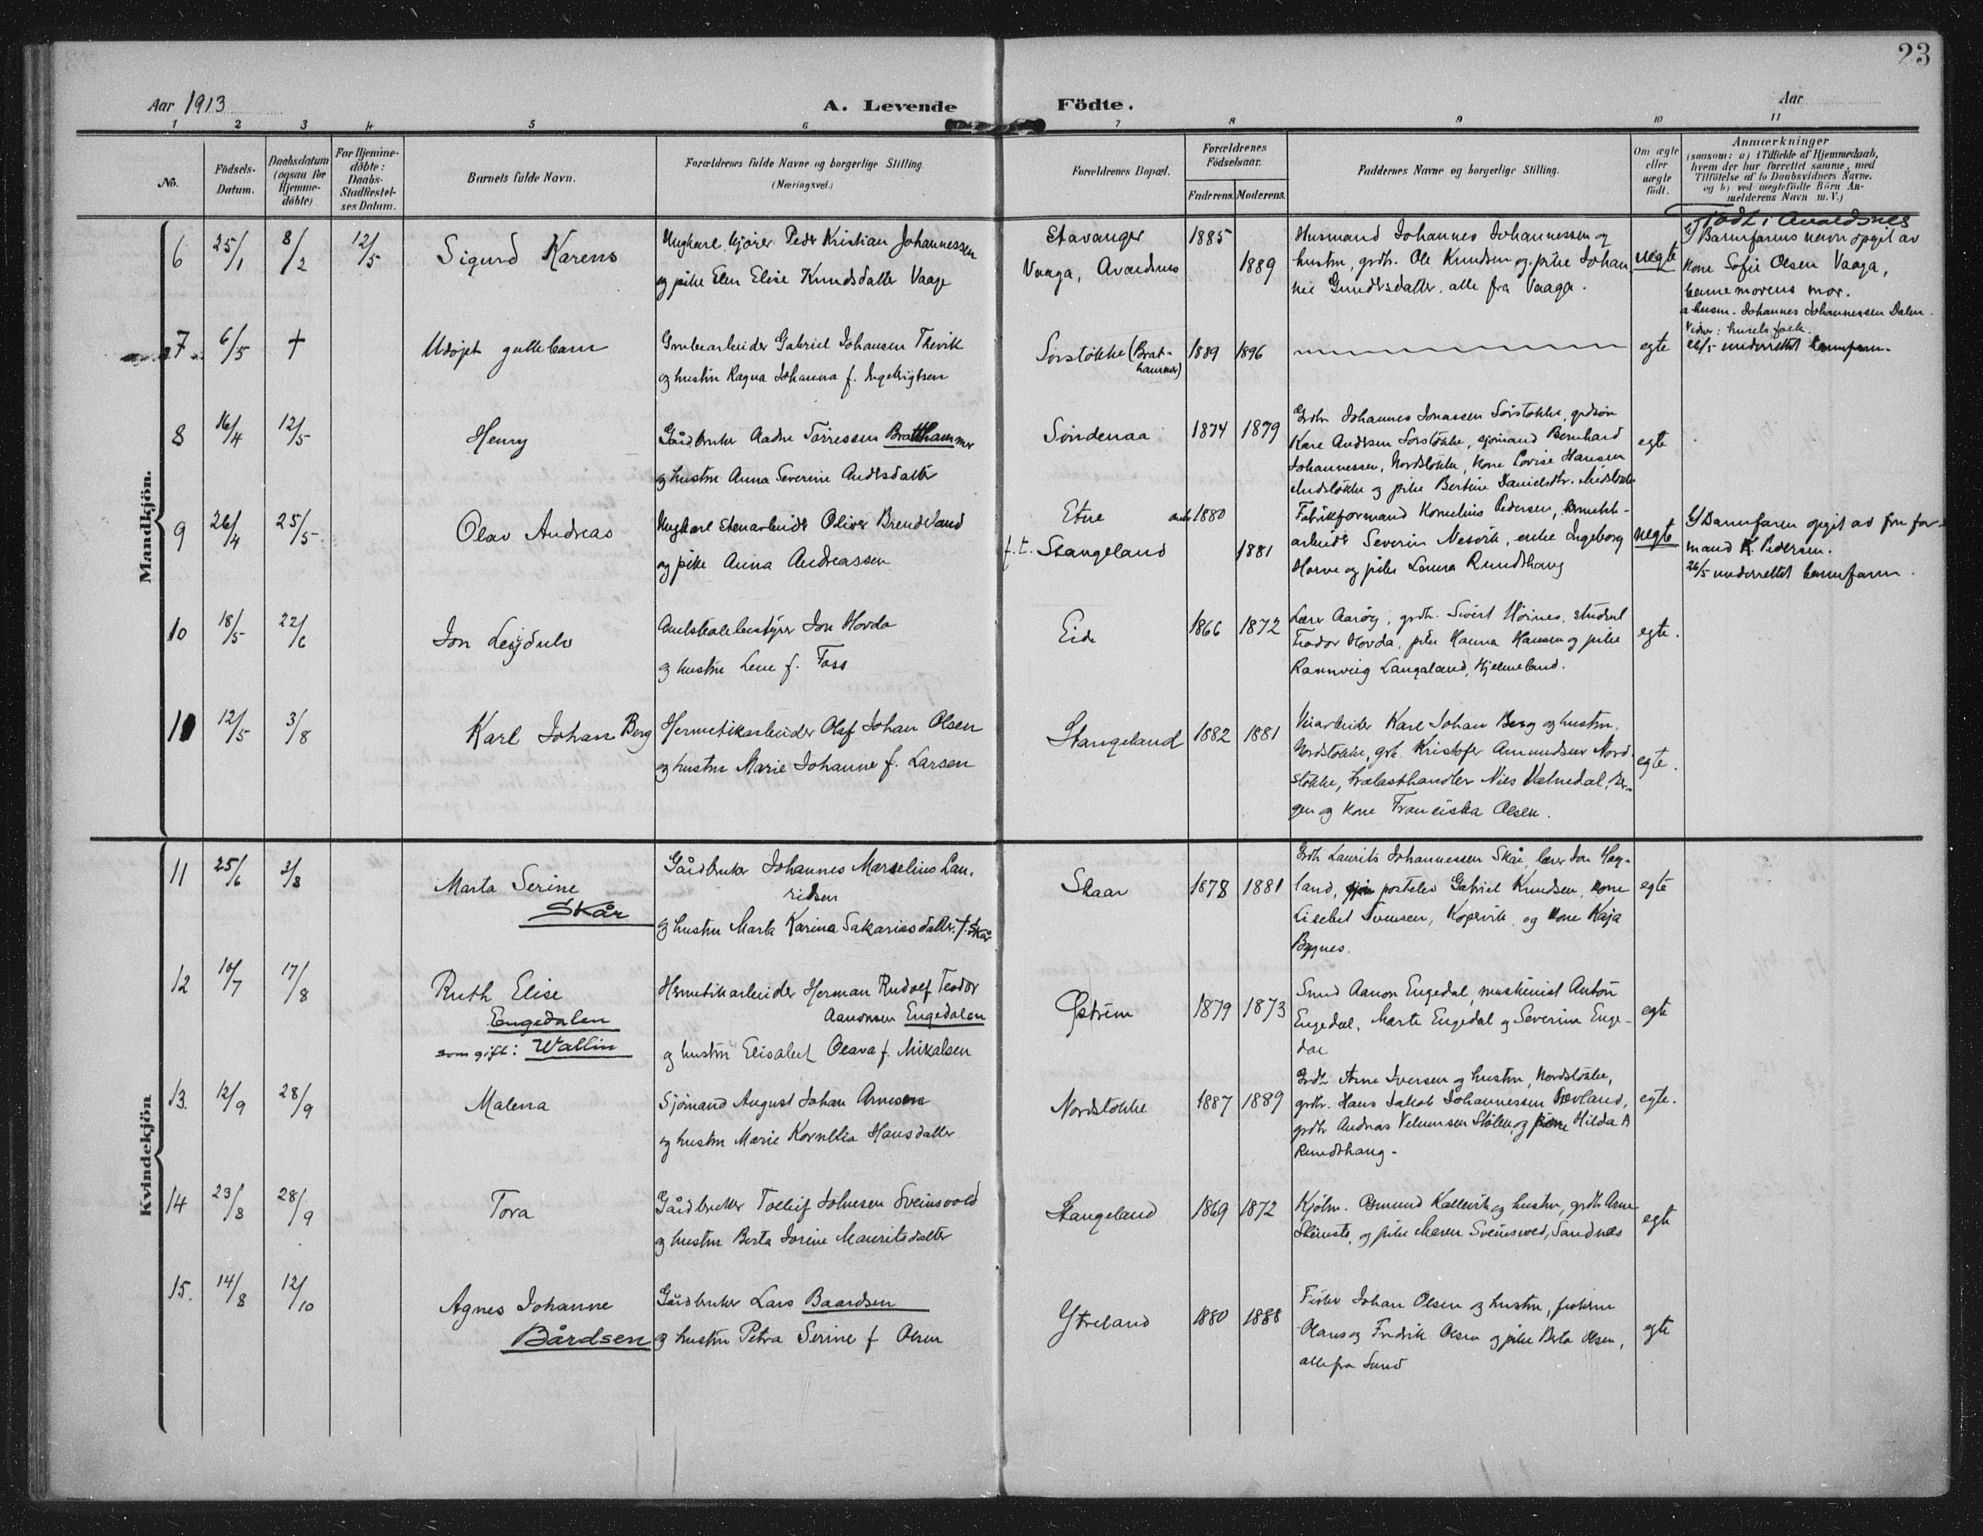 23
Aar 1913
A. Levende Födte.
Aar
1 2 3 4 5 6 7 8 9 10 11
No.
Födsels-Datum.
Daabsdatum (ogsaa for Hjemme-döbte)
For Hjemme-döbte: Daabs-Stadfestel-ses Datum.
Barnets fulde Navn.
Forældrenes fulde Navne og borgerlige Stilling.
(Næringsvei.)
Forældrenes Bopæl.
Forældrenes Födselsaar.
Faderens. Moderens.
Faddernes Navne og borgerlige Stilling.
Om ægte eller uægte födt.
Anmærkninger
(saasom: a) i Tilfælde af Hjemmedaab,
hvem der har forrettet samme, med
Tilföielse af to Daabsvidners Navne.
og b) ved uægtefödte Börn An-
melderens Navn m. V.)
Mandkjön.
6 25/1 8/2 12/5 Sigurd Karens
Ungkarl, kjører Peder Kristian Johannessen
og pike Elen Elise Knudsdatter Vaage
Stavanger 1885
Vaaga, Avaldnes 1889
Husmand Johannes Johannessen og
hustru, grdbr. Ole Knudsen og pike Johan
ne Gundersdatter, alle fra Vaage.
uegte
Født i Avaldsnes
b) Barnefarens navn opgit av
kone Sofie Olsen Vaaga,
barnemorens mor.
a husm. Johannes Johannessen Dalen.
Vidner: husets folk.
7 6/5 † Udøpt guttebarn
Grubearbeider Gabriel Johansen Thevik
og hustru Ragna Johanna f. Ingebrigtsen
Sørstokke (Brat-hammer) 1889 1896
egte
26/5 underrettet barnefaren.
8 16/4 12/5 Henry
Gårdbruker Aadne Tørressen Bratthammer
og hustru Anna Severine Andersdatter
Søndenaa 1874 1879
Grdbr Johannes Jonassen Sørstokke, grdsøn
Karl Andersen Sørstokke, sjømand Bernhard
Johannessen, Nordstokke, kone Lovise Hansen
Midstokke og pike Bertine Danielsdtr. Midstokke
egte
9 26/4 25/5 Olav Andreas
Ungkarl Stenarbeider Oliver Brendeland
og pike Anna Andreassen
Etne 1880
f. t. Stangeland 1881
Fabrikformand Kornelius Pedersen,
arbeider Severin Nesvik, enke Ingeborg
Horne og pike Laura Rundshaug
uegte
b) Barnefaren opgit av fru for-
mand K. Pedersen.
26/5 underrettet barnefaren.
10 18/5 22/6 Jon Leijdulv
Amtskolebestyrer Jon Hovda
og hustru Lene f. Foss
Eide 1866 1872
Lærer Aarøy, grdbr. Sivert Høines, student
Teodor Hovda, pike Hanna Hansen og pike
Rannveig Langeland, Hjelmeland.
egte.
11 12/5 3/8 Karl Johan Berg
Hermetikarbeider Olaf Johan Olsen
og hustru Marie Johanne f. Larsen
Stangeland 1882 1881
Veiarbeider Karl Johan Berg og hustru,
Nordstokke, grb. Kristofer Amundsen Nord-
stokke, trælasthandler Nils Valnedal, Ber-
gen og kone Franciska Olsen.
egte.
Kvindekjön
11 25/6 3/8 Marta Serine
Skår
Gårdbruker Johannes Marselius Lau-
ridsen
og hustru Marta Karina Sakariasdatter, f. Skår
Skaar 1878 1881
Grdb Laurits Johannessen Skår, lærer Jon Hau-
land, postelev Gabriel Knudsen, kone
Lisebet Svensen, Kopervik, og kone Kaja
Bygnes.
egte
12 10/7 17/8 Ruth Elise
Engedalen
som gift: Wallin
Hermetikarbeider Herman Rudolf Teodor
Aanonsen Engedalen
og hustru Elisabet Olava f. Mikalsen
Østrem 1879 1873
Smed Aanon Engedal, maskinist Anton
Engedal, Marte Engedal og Severine Enge-
dal
egte
13. 12/9 28/9 Malena
Sjømand August Johan Arnesen
og hustru Marie Kornelia Hansdatter
Nordstokke 1887 1889
Grdb Arne Iversen og hustru, Nordstokke,
grdbr. Hans Jakob JohannessenÆvland,
grdbr Andreas Velumsen Stølen, og kone Hilda A
Rundshaug.
egte.
14 23/8 28/9 Tora
Gårdbruker Tolleif Johnsen Sveinsvold
og hustru Berta Jorine Mauritsdatter
Stangeland 1869 1872
Kjøbm. Osmund Kallevik og hustru, grdb Arne
og pike Maren Sveinsvold, Sandnes
egte
15. 14/8 12/10 Agnes Johanne
Bårdsen
Gårdbruker Lars Baardsen
og hustru Petra Serine f. Olsen
Ytreland 1880 1888
Fisker Johan Olsen og hustru, fiskerne
Olaus og Fredrik Olsen og pike Berta Olsen,
alle fra Sund
egte